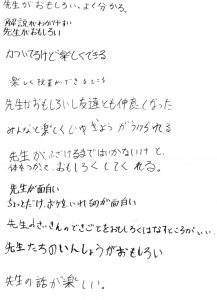 先生がおもしろい、よく分かる。
解説がわかりやすい
先生がおもしろい
力ついてるけど楽しくできる
楽しく授業ができるところ
先生がおもしろいし友達とも仲良くなった
みんなと楽しくじゅぎょうがうけられる
先生が、ふざけるまではいかないけど、
体をつかって、おもしろくしてくれる。
先生が面白い
ちょっとだけ、ボケをいれるのが面白い
先生のさいきんのできごとをおもしろくはなすところがいい。
先生たちのいんしょうがおもしろい
先生の話が楽しい。